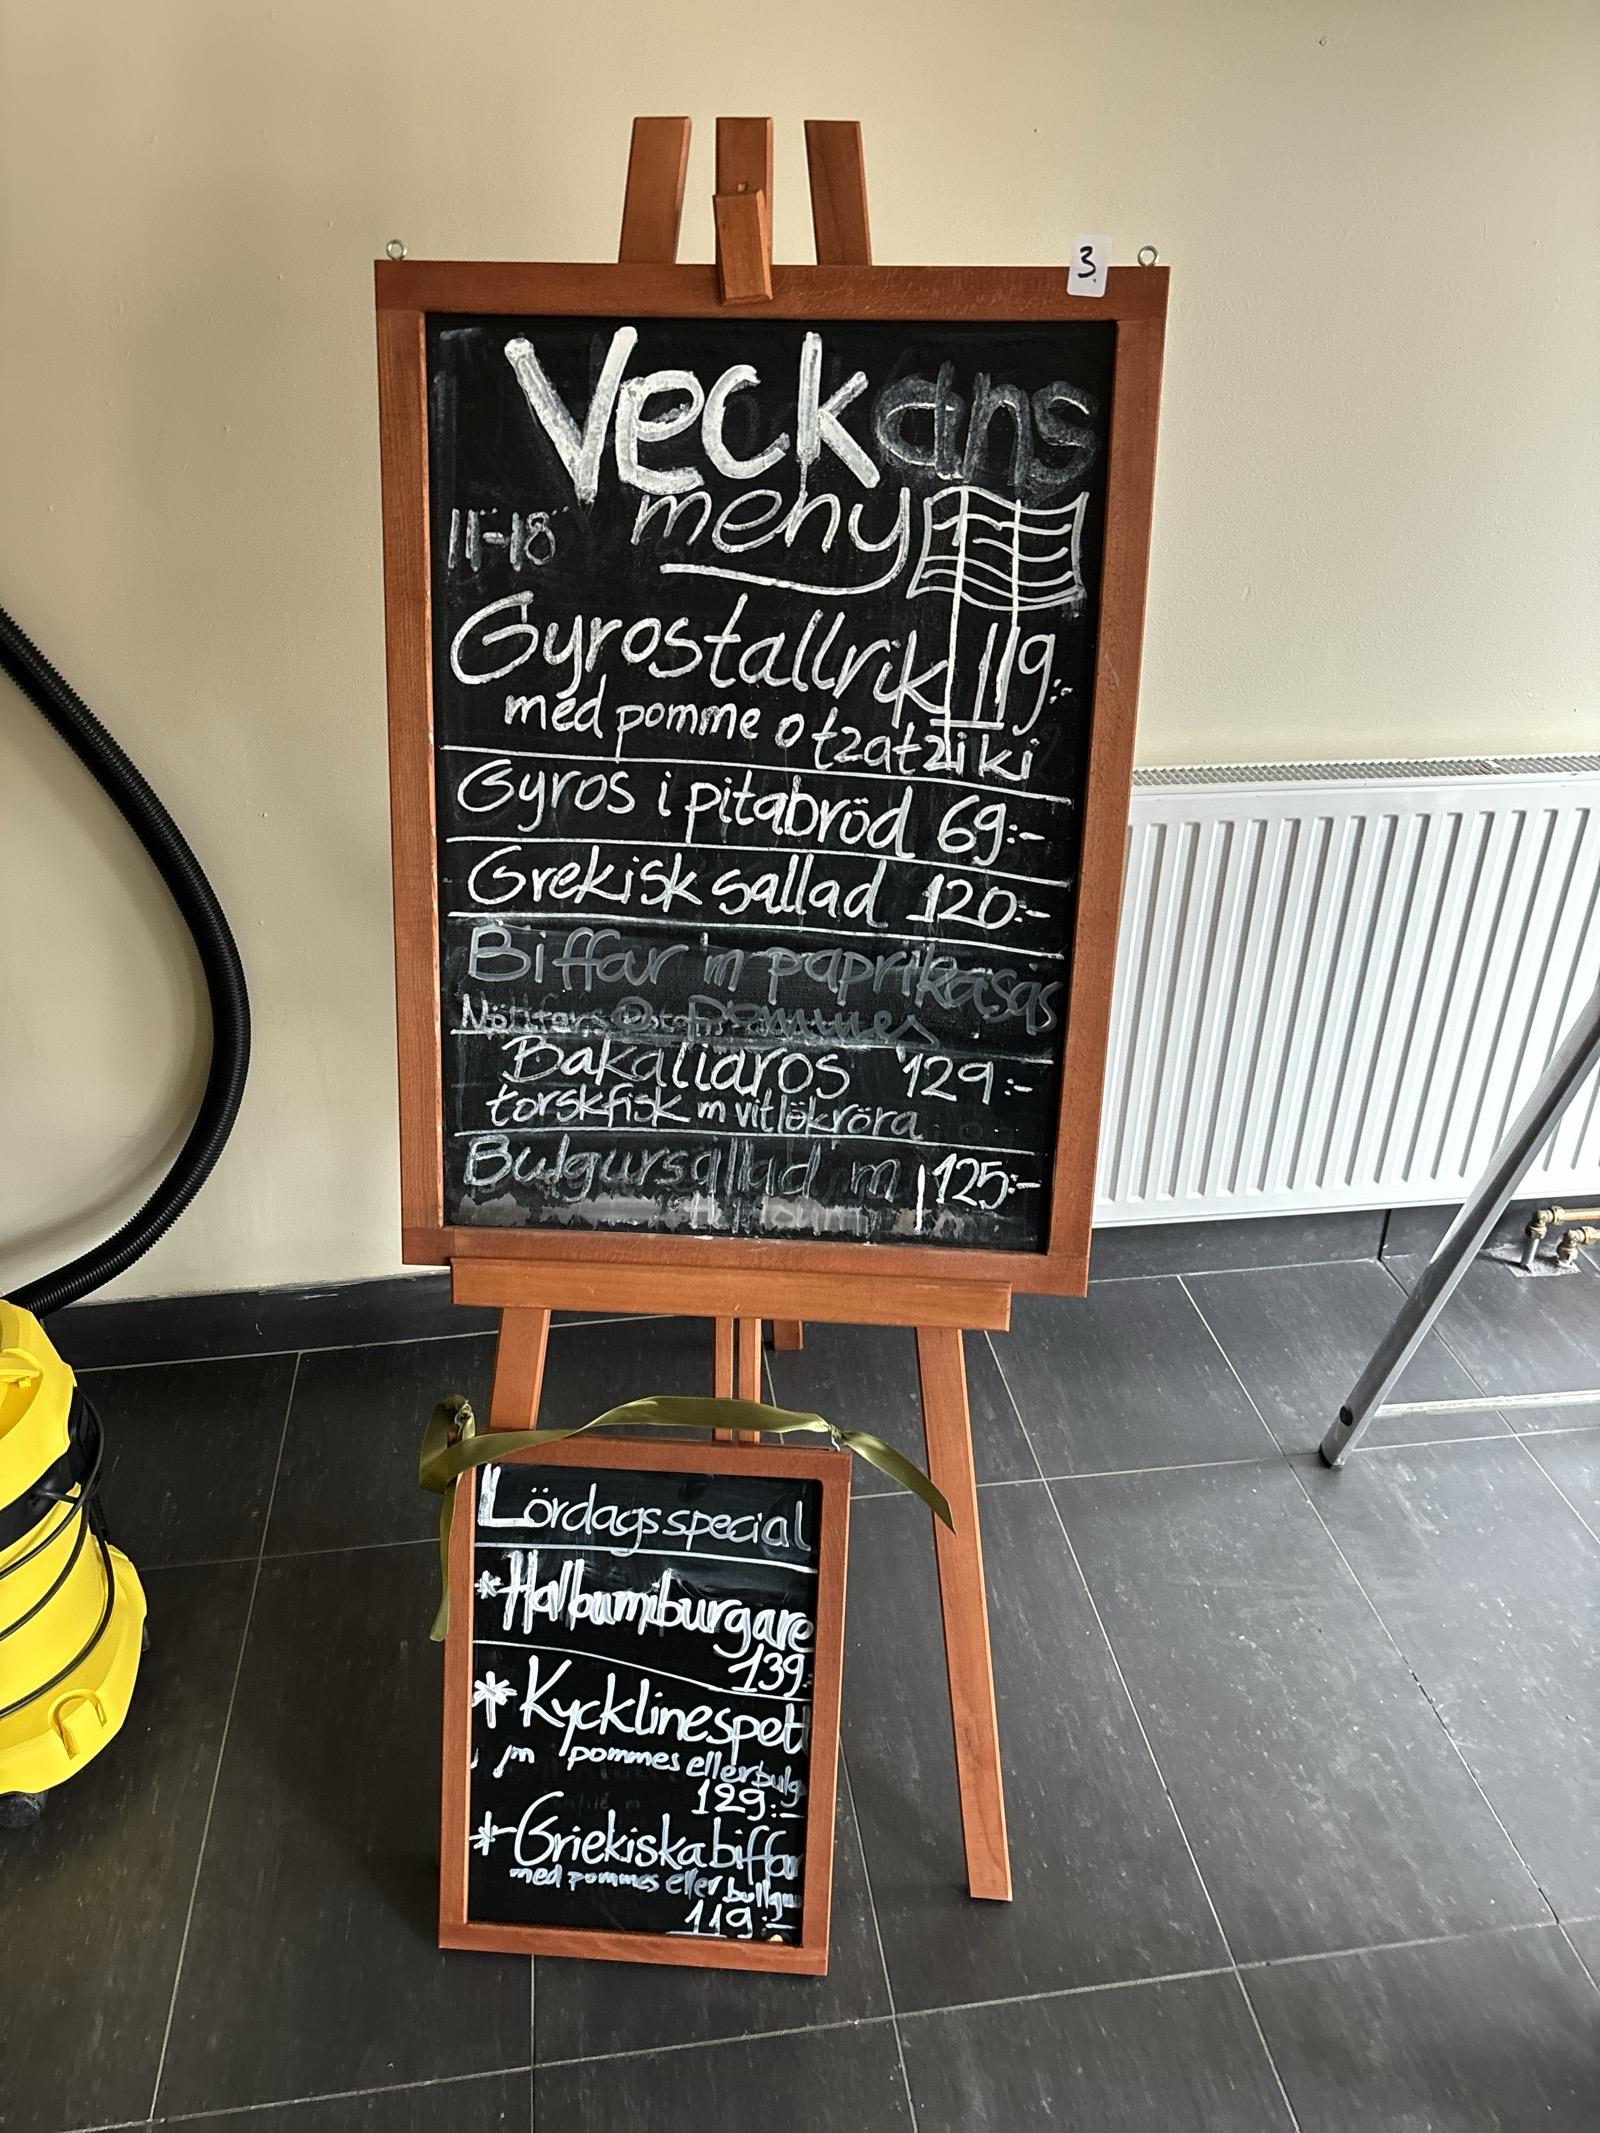 3.
Veckans
meny
11-18
Gyrostallrik 119:-
med pomme o tzatziki
Gyros i pitabröd 69:-
Grekisk sallad 120:-
Biffar m paprikasås
Nötfärs pommes
Bakaliaros 129:-
torskfisk m vitlökröra
Bulgursallad m 125:-
Lördagsspecial
*Hallumiburgare
139:
*Kycklinespett
m pommes eller bulg
129:-
*Griekiska biffar
med pommes eller bullgu
119:-